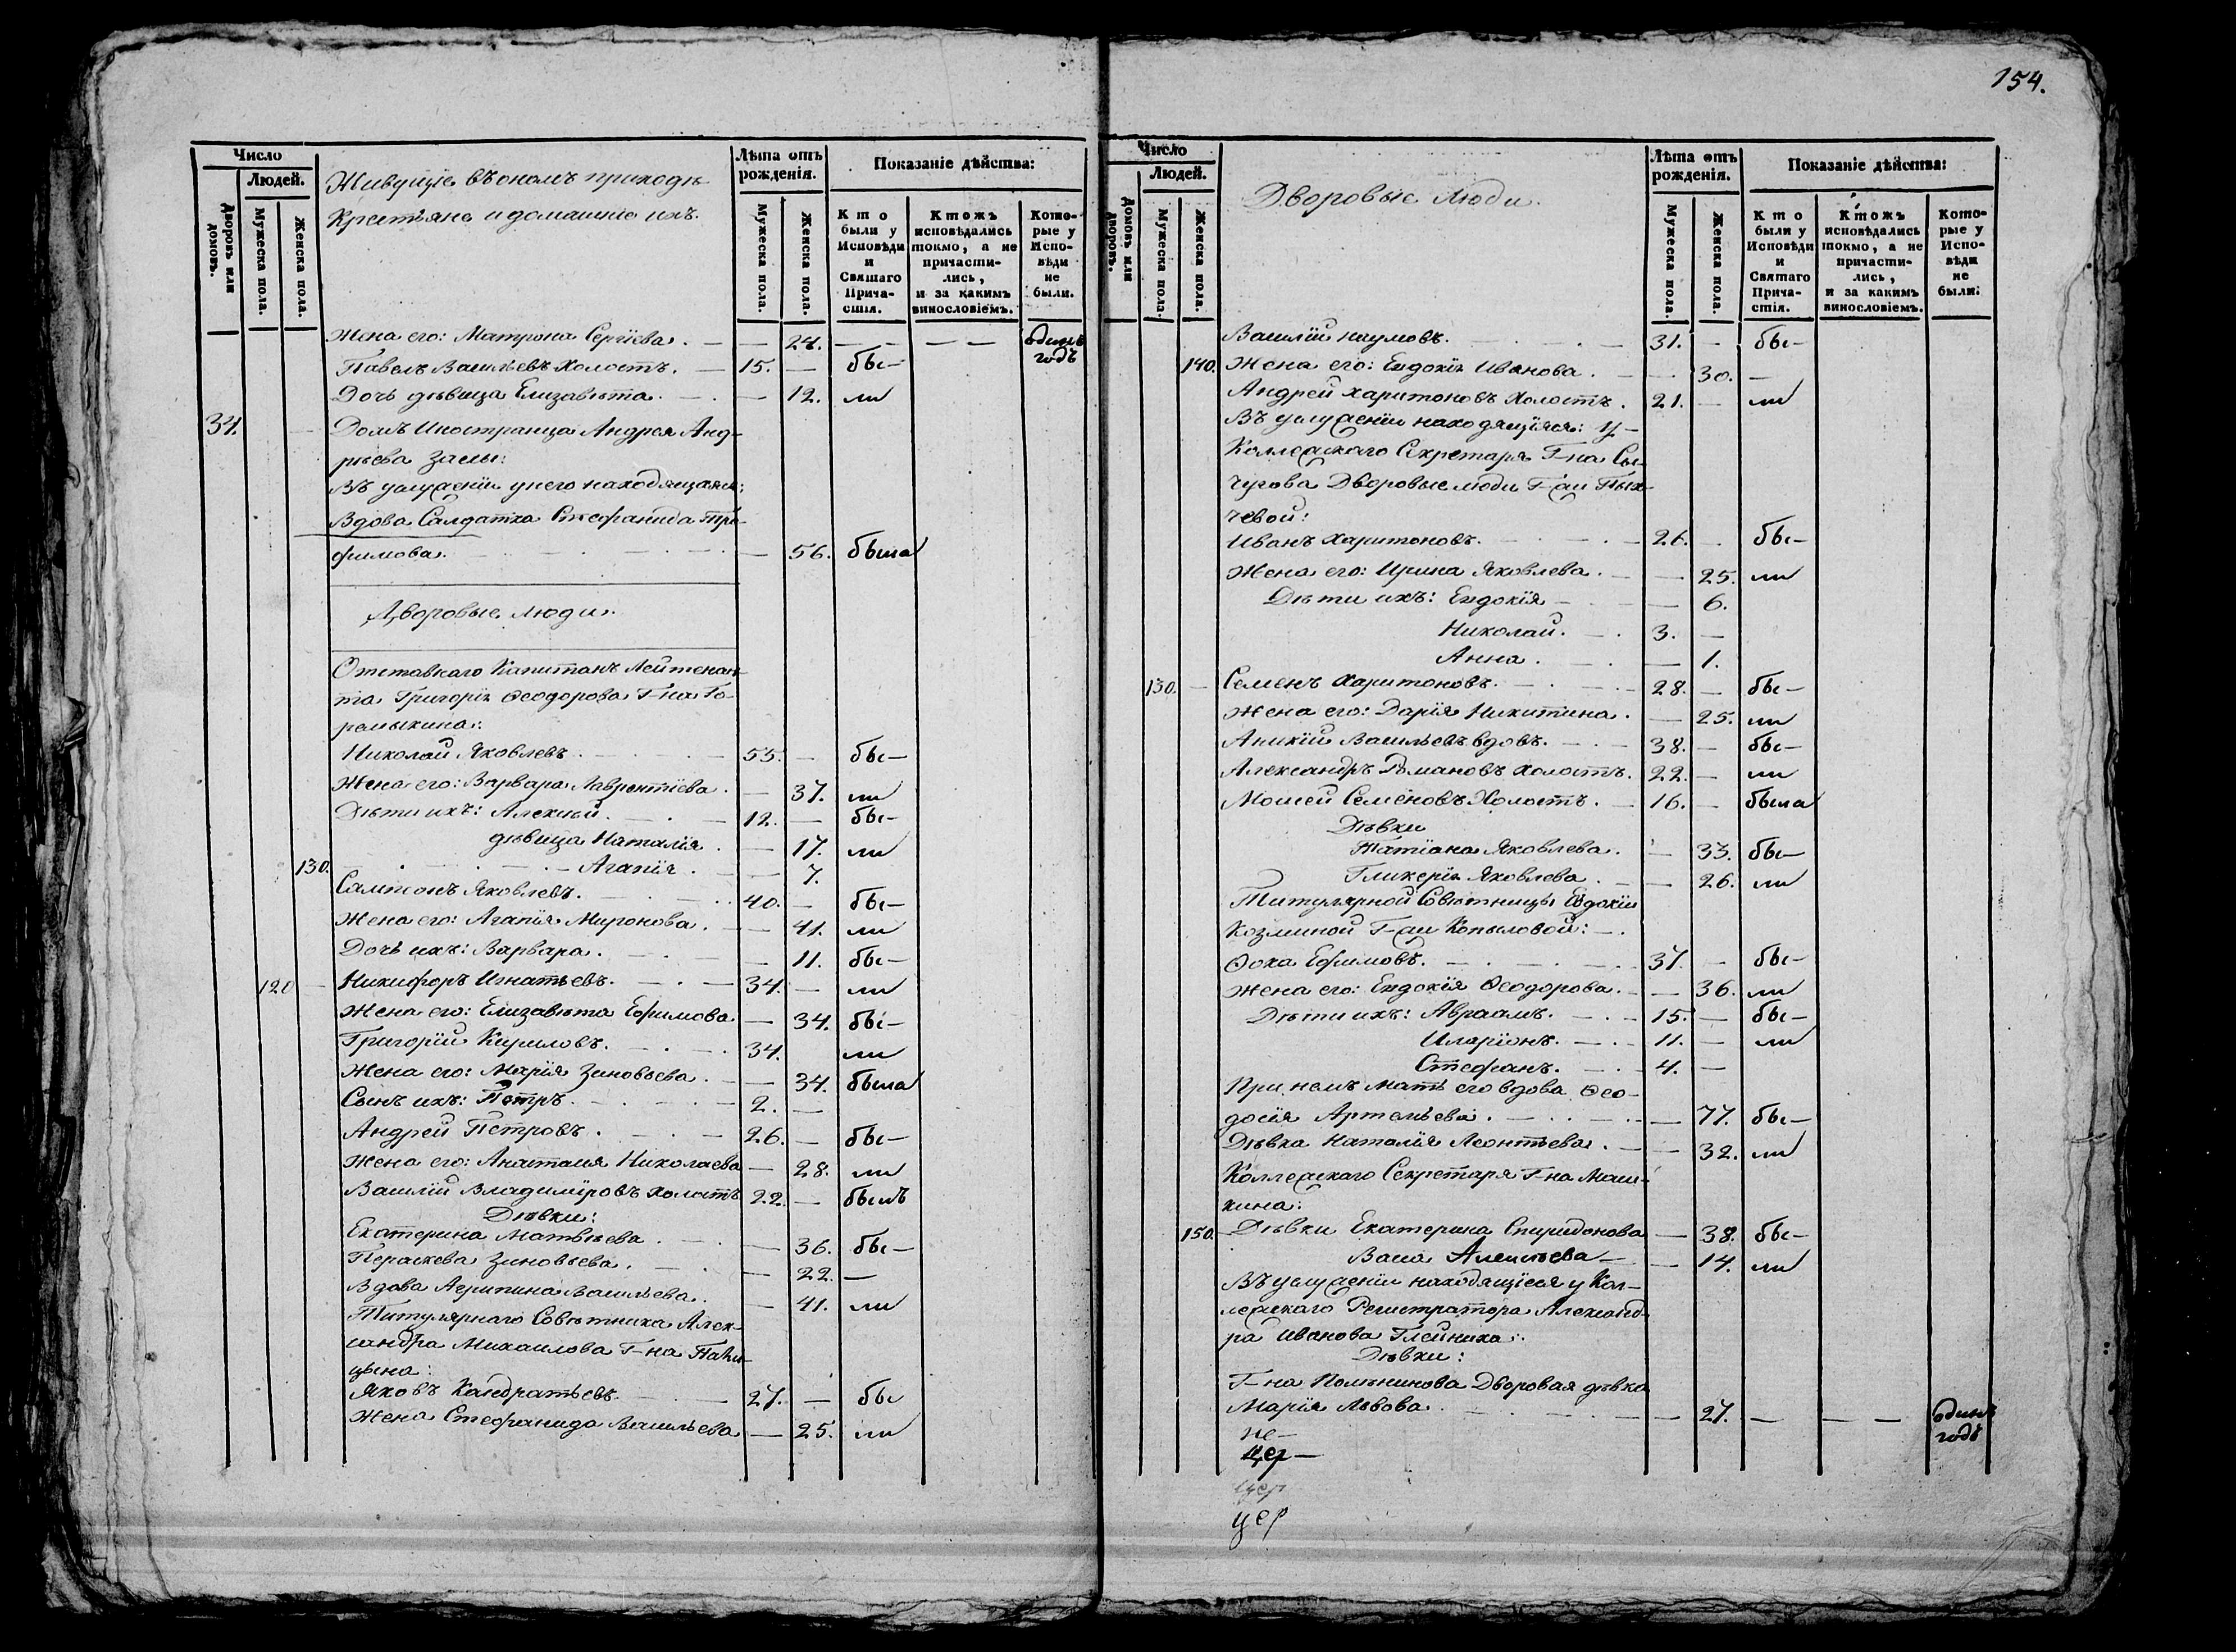 154.
Число
Людей.
Дворовъ или домовъ.
Мужеска пола.
Женска пола.
Живущіе въ ономъ приходѣ
Крестьяне и домашніе ихъ.
Лѣта отъ рожденія.
Мужеска пола.
Женска пола.
Показаніе дѣйства:
Кто были у Исповѣди и Святаго Прича-стія.
Ктожъ исповѣдались токмо, а не причасти-лись, и за какимъ винословіемъ.
Кото-рые у Испо-вѣди не были.
Жена его: Матрона Сергіева. — — 24. — — — — одинъ годъ
Павелъ Васильевъ Холостъ. — 15. — бы-
Дочь дѣвица Елизавета. — 12. ли
34. Домъ Иностранца Андрея Анд-
рѣева
Въ услуженіи у него находящаяся:
Вдова Салдатка Стефанида Тро-
фимова. — 56. была
Дворовые люди.
Отставнаго Капитанъ Лейтенан-
та Григорія Ѳеодорова Г-на Го-
ремыкина:
Николай Яковлевъ. — 55. — бы-
Жена его: Варвара Лаврентіева. — 37. ли
Дѣти ихъ: Алексѣй. — 12. — бы-
дѣвица Наталія. — 17. ли
130. — Агапія. — 7.
Сампсонъ Яковлевъ. 40. — бы-
Жена его: Агапія Миронова. — 41. ли
Дочь ихъ: Варвара. — 11. бы-
120 — Никифоръ Игнатьевъ. — 34. — ли
Жена его: Елизавета Ефимова. — 34. бы-
Григорій Кириловъ. 34. ли
Жена его: Марія Зиновьева. — 34. была
Сынъ ихъ: Петръ. — 2. —
Андрей Петровъ. — 26. — бы-
Жена его: Анатолія Николаева — 28. ли
Василій Владиміровъ холостъ 22. — былъ
Дѣвки:
Екатерина Матвѣева. — 36. бы-
Параскева Зиновьева. — 22. —
Вдова Агрипина Васильева. — 41. ли
Титулярнаго Совѣтника Алек-
сандра Михаилова Г-на
цына:
Яковъ Кандратьевъ. — 27. — бы
Жена Стефанида Васильева — 25. ли
Число
Людей.
Домовъ или дворовъ.
Мужеска пола.
Женска пола.
Дворовые Люди.
Лѣта отъ рожденія.
Мужеска пола.
Женска пола.
Показаніе дѣйства:
Кто были у Исповѣди и Святаго Прича-стія.
Ктожъ исповѣдались токмо, а не причасти-лись, и за какимъ винословіемъ.
Кото-рые у Испо-вѣди не были:
Василій Наумовъ. — 31. — бы-
140. Жена его: Евдокія Иванова. — 30. —
Андрей Харитоновъ Холостъ. 21. — ли
Въ услуженіи находящіяся: у-
Коллежскаго Секретаря Г-на Сы-
чугова Дворовые люди Г-жи
чевой:
Иванъ Харитоновъ. — 26. бы-
Жена его: Ирина Яковлева. — 25. ли
Дѣти ихъ: Евдокія — 6.
Николай. 3. —
Анна. — 1.
130. — Семенъ Харитоновъ. — 28. — бы-
Жена его: Дарія Никитина. — 25. ли
Аникій Васильевъ вдовъ. — 38. — бы-
Александръ Романовъ Холостъ. 22. — ли
Моисей Семеновъ Холостъ. — 16. — была
Дѣвки
Татіана Яковлева. — 33. бы-
Гликерія Яковлева. — 26. ли
Титулярной Совѣтницы Евдокіи
Козминой Г-жи Копыловой: —
Ѳока Ефимовъ. — 37. — бы-
Жена его: Евдокія Ѳеодорова. — 36. ли
Дѣти ихъ: Авраамъ. — 15. — бы-
Иларіонъ. — 11. — ли
Стефанъ. — 4. —
При немъ мать его вдова Ѳео-
досія Артемьева. — 77. бы-
Дѣвка Наталія Леонтьева. — 32. ли
Коллежскаго Секретаря Г-на
кина:
150. Дѣвки Екатерина Спиридонова — 38. бы-
Васса Алексѣева — 14. ли
Въ услуженіи находящіеся у Кол-
лежскаго Регистратора Александ-
ра Иванова Глейниха:
Дѣвки:
Г-на Дворовая дѣвка
Марія Львова. — 27. — — — одинъ годъ
не-
цер-
цер
цер